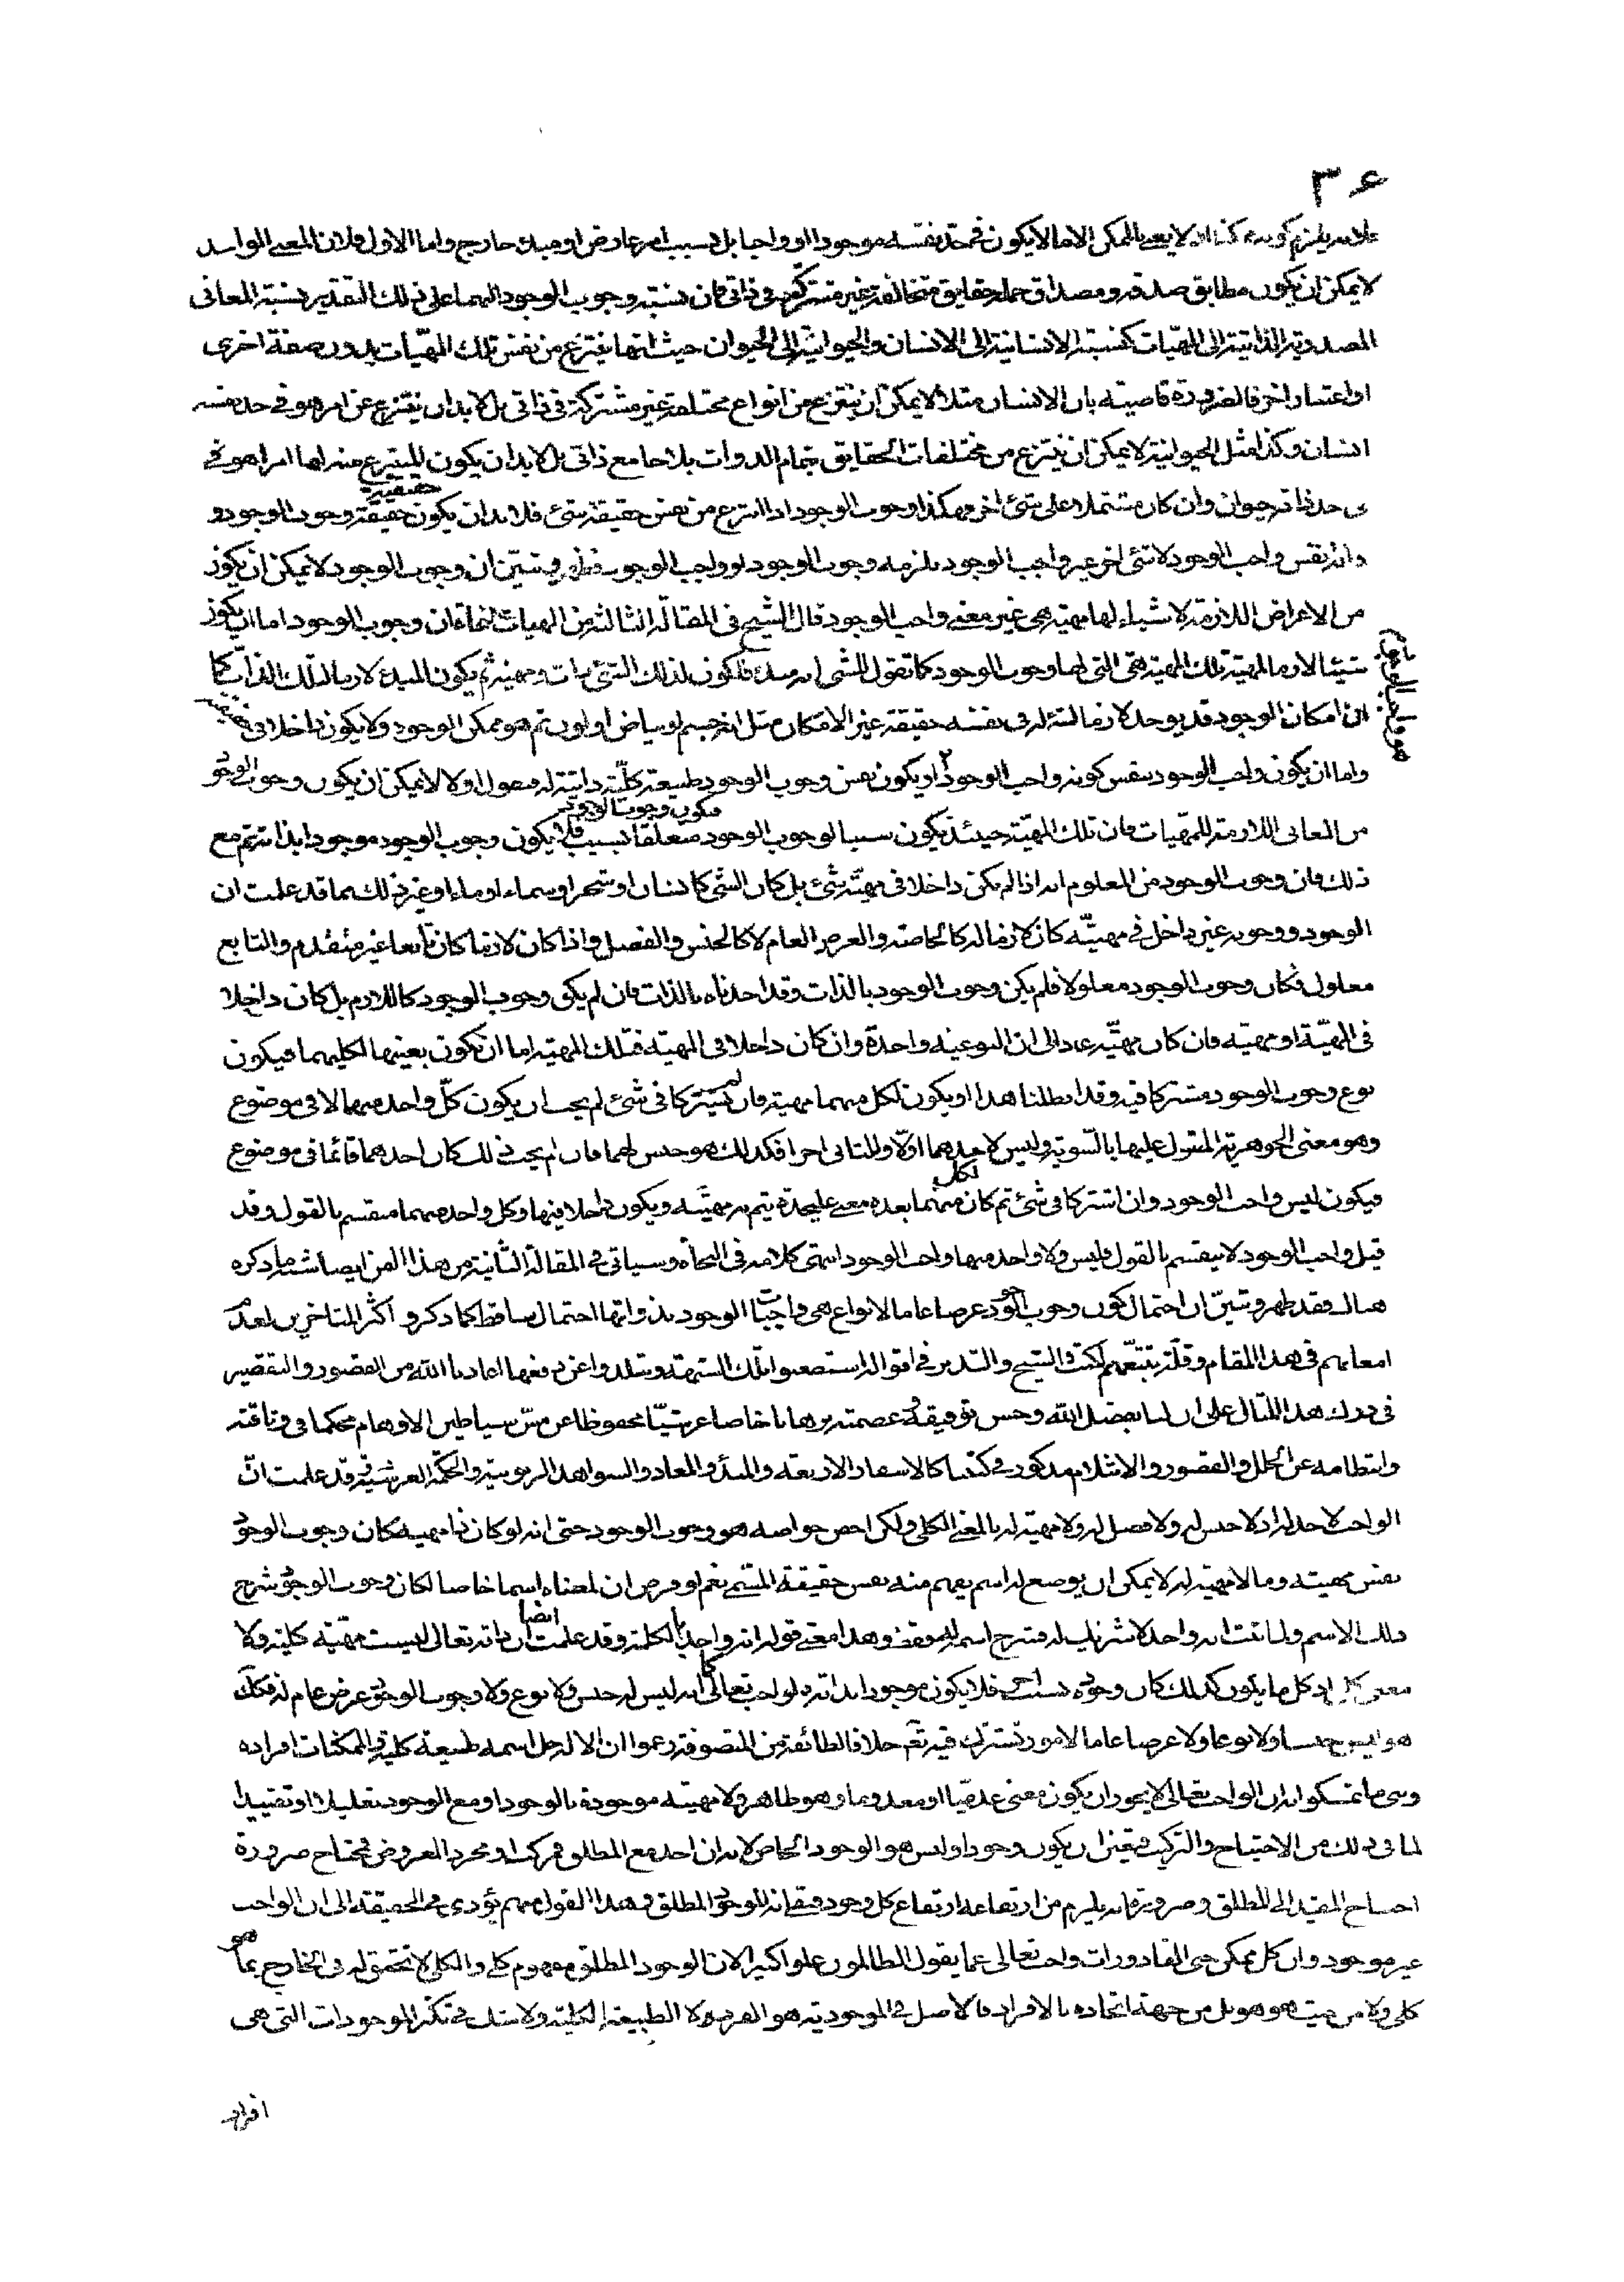 ٣٦
فلانه يلزم كونه ممكنا اذ لا يعنى بالممكن الا ما لا يكون فى حد نفسه موجودا او واجبا بل بسبب امر عارض او مبدء خارج واما الاول فلان المعنى الواحد
لا يمكن ان يكون مطابق صدقه ومصداق حمله حقايق متخالفة غير مشتركة فى ذاتى فان نسبة وجوب الوجود اليهما على ذلك التقدير كنسبة المعانى
المصدرية الذاتية الى المهيات كنسبة الانسانية الى الانسان والحيوانية الى الحيوان حيث انها ينتزع من نفس تلك المهيات بدون صفة اخرى
او اعتبار اخر فالضرورة قاضية بان الانسان مثلا لا يمكن ان ينتزع من انواع مختلفة غير مشتركة فى ذاتى بل لا بد ان ينتزع عن امر هو فى حد نفسه
انسان وكذا مثل الحيوانية لا يمكن ان ينتزع من مختلفات الحقايق بتمام الذوات بلا جامع ذاتى بل لا بد ان يكون للمنتزع منه لها امرا هو فى
حد ذاته حيوان وان كان مشتملا على شئ اخر فهكذا وجوب الوجود اذا انتزع من نفس حقيقة شئ فلا بد ان يكون حقيقته حقيقة وجوب الوجود و
وانه نفس واجب الوجود لا شئ اخر غير واجب الوجود يلزمه وجوب الوجود او واجب الوجود فظهر وتبين ان وجوب الوجود لا يمكن ان يكون
من الاعراض اللازمة لاشياء لها مهية هى غير معنى واجب الوجود قال الشيخ فى المقالة الثالثة من الهيات النجاة ان وجوب الوجود اما ان يكون
شيئا لازما لمهية تلك المهية هى التى لها وجوب الوجود كما تقول للشئ انه مبدء فيكون لذلك الشئ ذات ومهية ثم يكون المبدء لازما لتلك الذات كما
ان امكان الوجود قد يوجد لازما لشئ له فى نفسه حقيقة غير الامكان مثل انه جسم او بياض او لون ثم هو ممكن الوجود ولا يكون داخلا فى حقيقته
واما ان يكون واجب الوجود بنفس كونه واجب الوجود هو واجب الوجود او يكون نفس وجوب الوجود طبيعة كلية ذاتية له فنقول اولا لا يمكن ان يكون وجوب الوجود
من المعانى اللازمة للمهيات فان تلك المهية حينئذ يكون سببا لوجوب الوجود فيكون وجوب الوجود متعلقا بسبب فلا يكون وجوب الوجود موجودا بذاته ثم مع
ذلك فان وجوب الوجود من المعلوم انه اذا لم يكن داخلا فى مهية شئ بل كان الشئ كانسان او شجر او سماء او ماء او غير ذلك مما قد علمت ان
الوجود ووجوبه غير داخل فى مهيته كان لازما له كالخاصة والعرض العام لا كالجنس والفصل واذا كان لازما كان تابعا غير متقدم والتابع
معلول فكان وجوب الوجود معلولا فلم يكن وجوب الوجود بالذات وقد اخذناه بالذات فان لم يكن وجوب الوجود كاللازم بل كان داخلا
فى المهية او مهية فان كان مهية عاد الى ان النوعية واحدة وان كان داخلا فى المهية فتلك المهية اما ان تكون بعينها لكليهما فيكون
نوع وجوب الوجود مشتركا فيه وقد ابطلنا هذا او يكون لكل منهما مهية فان لم يشتركا فى شئ لم يجب ان يكون كل واحد منهما لا فى موضوع
وهو معنى الجوهرية المقول عليهما بالسوية وليس لاحدهما اولا وللثانى اخرا فكذلك هو جنس لهما فان لم يجب ذلك كان احدهما قائما فى موضوع
فيكون ليس واجب الوجود وان اشتركا فى شئ ثم كان لكل منهما بعده معنى عليحدة يتم به مهيته ويكون داخلا فيها وكل واحد منهما منقسم بالقول وقد
قيل واجب الوجود لا ينقسم بالقول فليس ولا واحد منهما واجب الوجود انتهى كلامه فى النجاة وسياتى فى المقالة الثانية من هذا الفن ايضا ما ذكره
هناك فقد ظهر وتبين ان احتمال كون وجوب الوجود عرضا عاما لانواع هى واجبات الوجود بذواتها احتمال ساقط كما ذكر واكثر المتاخرين لعدم
امعانهم فى هذا المقام وقلة تتبعهم لكتب الشيخ والتدبر فى اقواله استصعبوا تلك الشبهة وتبلدوا عن دفعها اعاذنا الله من القصور والتقصير
فى درك هذا المنال على ان لنا بفضل الله وحسن توفيقه وعصمته برهانا خاصا عرشيا محفوظا عن مس شياطين الاوهام محكما فى وثاقته
وانتظامه عن الخلل والقصور والانثلام مذكور فى كتبنا كالاسفار الاربعة والمبدء والمعاد والشواهد الربوبية والحكمة العرشية وقد علمت ان
الواجب لا حد له اذ لا جنس له ولا فصل له ولا مهية له بالمعنى الكلى ولكن اخص خواصه هو وجوب الوجود حتى انه لو كان ذا مهية كان وجوب الوجود
نفس مهيته وما لا مهية له لا يمكن ان يوضع له اسم يفهم منه نفس حقيقة المسمى نعم لو فرض ان لمعناه اسما خاصا لكان وجوب الوجود شرح
ذلك الاسم ولما ثبت انه واحد لا شريك له فشرح اسمه له فقط وهذا معنى قوله انه واحد بالكلية وقد علمت ايضا ان ذاته تعالى ليست مهية كلية ولا
معنى كلى اذ كل ما يكون كذلك كان وجوده بسبب اخر فلا يكون موجودا بذاته والواجب تعالى كما انه ليس له جنس ولا نوع ولا وجوب الوجود عرض عام له فكذلك
هو ليس جنسا ولا نوعا ولا عرضا عاما لامور تشترك فيه ثم خلافا لطائفة من المتصوفة زعموا ان الاله جل اسمه طبيعة كلية والممكنات افراده
ومنى ما تمسكوا به ان الواجب تعالى لا يجوز ان يكون معنى عدميا او معدوما وهو ظاهر ولا مهية موجودة بالوجود او مع الوجود تعليلا او تقييدا
لما فى ذلك من الاحتياج والتركيب فتعين ان يكون وجودا وليس هو الوجود الخاص لانه ان اخذ مع المطلق فمركب او مجرد المعروض فمحتاج ضرورة
احتياج المقيد الى المطلق وضرورة انه يلزم من ارتفاعه ارتفاع كل وجود فبقى انه الوجود المطلق وهذا القول منهم يؤدى فى الحقيقة الى ان الواجب
غير موجود وان كل ممكن حتى القاذورات واجب تعالى عما يقول الظالمون علوا كبيرا لان الوجود المطلق مفهوم كلى والكلى لا تحقق له فى الخارج بما هو
كلى ولا من حيث هو هو بل من جهة اتحاده بالافراد فالاصل فى الموجودية هو الفرد لا الطبيعة الكلية ولا شك فى تكثر الموجودات التى هى
افراد